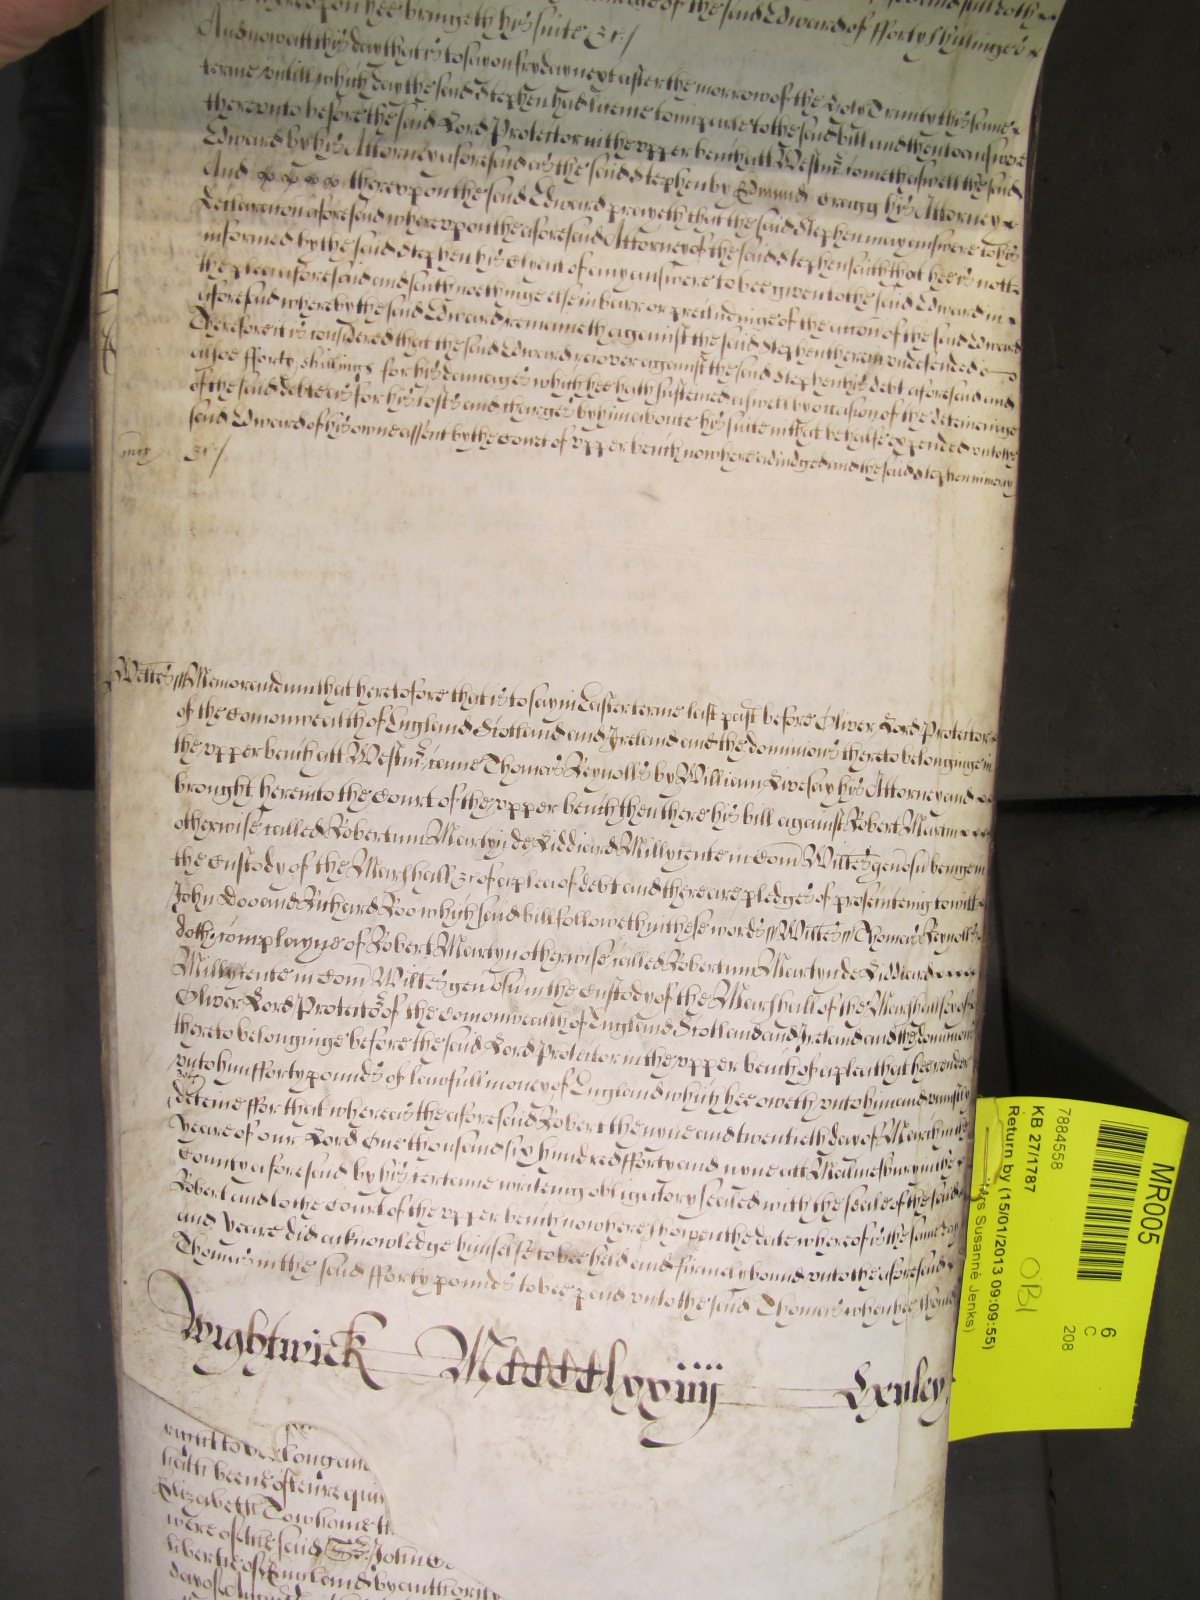 thereupon hee bringeth his suite &c/ damage of the said Edward of fforty shillinges
And now att this day that is to say on fryday next after the morrow of the holy Trinity this same
terme untill which day the said Stephen had licence to imparle to the said bill and then to answere
thereunto before the said Lord Protector in the upper bench att Westmr come aswell the said
Edward by his Attorney aforesaid as the said Stephen by Edmund Bragg his Attorney
And thereupon the said Edward prayeth that the said Stephen may answere to his
Declaracon aforesaid whereupon the aforesaid Attorney of the said Stephen saith that hee is nott
informed by the said Stephen his clyent of any answere to bee given to the said Edward in
the plea aforesaid and saith noethinge else in barr or precludinge of the accon of the said Edward
aforesaid whereby the said Edward remaineth against the said Stephen therein undefended
Therefore it is considered that the said Edward recover against the said Stephen his debt aforesaid and
alsoe fforty shillings for his damages which hee hath susteined aswell by occasion of the deteininge
of the said debt as for his costs and charges by him aboute his suite in that behalfe expended unto the
said Edward of his owne assent by the Court of upper bench now here adiudged and the said Stephen in mercy
mcy &c/
Wiltes// Memorandum that heretofore that is to say in Easter terme last past before Oliver Lord Protector
of the Comonwealth of England Scotland and Ireland and the dominions thereto belonginge in
the upper bench att Westmr came Thomas Reynolls by William Livesay his Attorney and
brought here into the Court of the upper bench then there his bill against Robert Martyn
otherwise called Robertum Martyn de Liddiard Millycente in Com Wiltes genosu beinge in
the Custody of the Marshall &c of a plea of debt and there are pledges of prosecuteing to witt
John Doo and Richard Roo which said bill followeth in these words // Wiltes // Thomas Reynolls
doth complayne of Robert Martyn otherwise called Robertum Martyn de Liddiard
Millycente in Com Wiltes genosu in the Custody of the Marshall of the Marshallsey of
Oliver Lord Protector of the Comonwealth of England Scotland and Ireland and the dominions
thereto belonginge before the said Lord Protector in the upper bench of a plea that hee render
unto him fforty pounds of lawfull money of England which hee oweth unto him and uniustly
deteine ffor that whereas the aforesaid Robert the nyne and twentieth day of March in the
yeare of our Lord One thousand six hundred fforty and nyne att Malmesbury in the
County aforesaid by his certaine writeing obligatory sealed with the seale of the said
Robert and to the Court of the upper bench now here shewen the date whereof is the same day
and yeare did acknowledge himselfe to bee held and firmely bound unto the aforesaid
Thomas in the said fforty pounds to bee paid unto the said Thomas when hee should
Wightwick Mccccclxxiiij Exuley
right to
hath beene
Elizabeth
were of the said John
libertie of England by authority
day of August
MR005
6
C
208
7884558
KB 27/1787
OBI
Return by (15/01/2013 09:09:55)
Mrs Susanne Jenks)